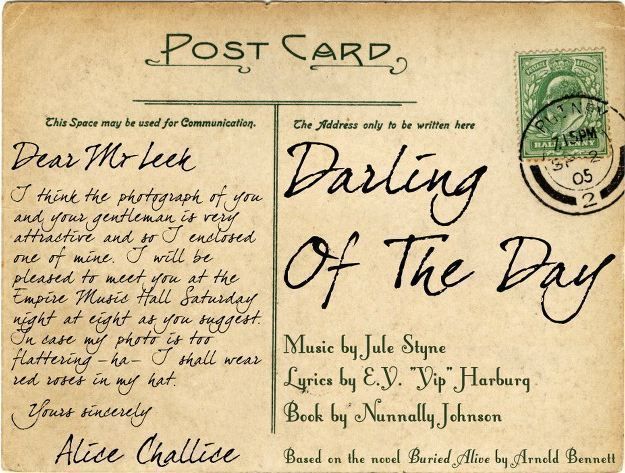 POST CARD
This Space may be used for Communication.
The Address only to be written here
Dear Mr Leek
I think the photograph of you
and your gentleman is very
attractive and so I enclosed
one of mine. I will be
pleased to meet you at the
Empire Music Hall Saturday
night at eight as you suggest.
In case my photo is too
flattering – ha – I shall wear
red roses in my hat.
Yours sincerely
Alice Challice
Darling
Of The Day
Music by Jule Styne
Lyrics by E.Y. "Yip" Harburg
Book by Nunnally Johnson
Based on the novel Buried Alive by Arnold Bennett
HALFPENNY
PUTNEY
15PM
SP 2
05
2